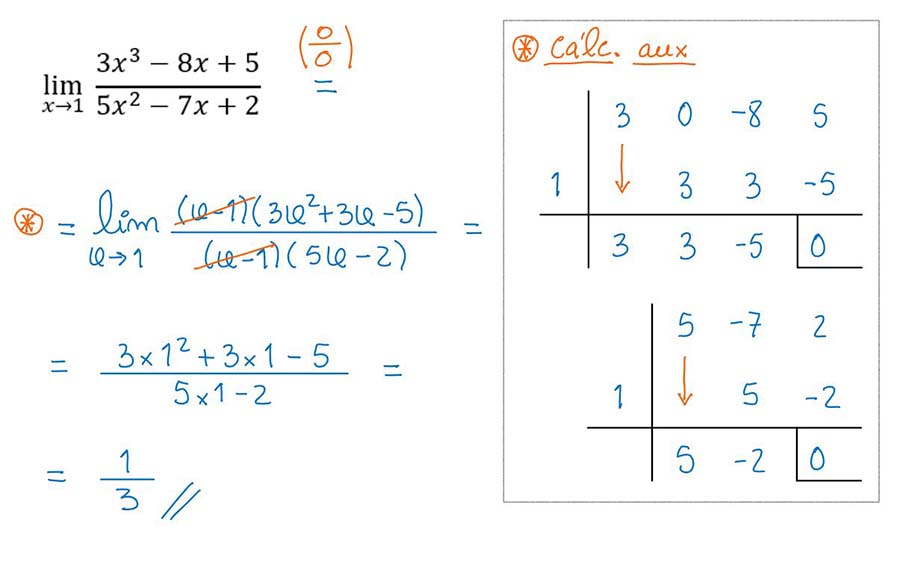 lim x→1 (3x³ − 8x + 5)/(5x² − 7x + 2) (0/0) =
⊛ = lim x→1 (x-1)(3x²+3x-5)/(x-1)(5x-2) =
= (3×1²+3×1-5)/(5×1-2) =
= 1/3 //
⊛ Cálc. aux
3 0 -8 5
1 ↓ 3 3 -5
3 3 -5 0
5 -7 2
1 ↓ 5 -2
5 -2 0